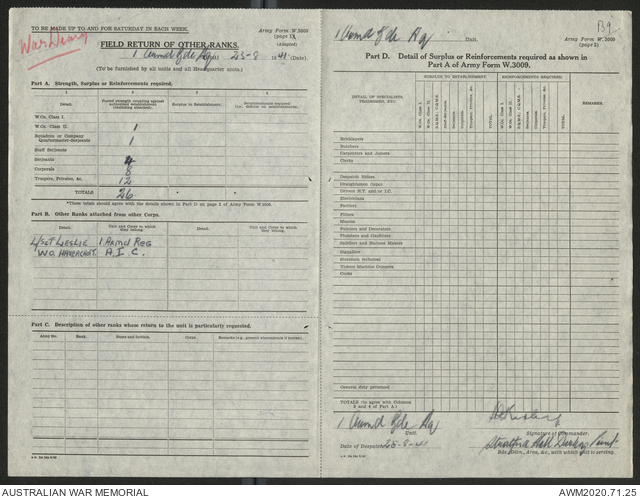 TO BE MADE UP TO AND FOR SATURDAY IN EACH WEEK.
Army Form W.3009
(page 1)
(Adapted)
War Diary
FIELD RETURN OF OTHER RANKS.
1 Armd Bde Hq 23-8 1941 (Date).
(To be furnished by all units and all Headquarter units.)
Part A. Strength, Surplus or Reinforcements required.
1 2 3 4
Detail. Posted strength counting against authorised establishment (excluding attached). Surplus to Establishment. Reinforcements required
W.Os. Class I.
W.Os. Class II. 1
Squadron or Company Quartermaster-Serjeants 1
Staff Serjeants
Serjeants 4
Corporals 8
Troopers, Privates, &c. 12
TOTALS 26
*These totals should agree with the details shown in Part D on page 2 of Army Form W.3009.
Part B. Other Ranks attached from other Corps.
Detail. Unit and Corps to which they belong. Detail. Unit and Corps to which they belong.
L/Sgt Leslie 1 Armd Reg
W.O. A.I.C.
Part C. Description of other ranks whose return to the unit is particularly requested.
Army No. Rank. Name and Initials. Corps. Remarks (e.g., present whereabouts if known).
1 Armd Bde Hq Unit.
Army Form W.3009
(page 2)
Part D. Detail of Surplus or Reinforcements required as shown in
Part A of Army Form W.3009.
DETAIL OF SPECIALISTS, TRADESMEN, ETC.
SURPLUS TO ESTABLISHMENT. REINFORCEMENTS REQUIRED.
W.Os. Class I. W.Os. Class II. Staff-Serjeants Serjeants Corporals Troopers, Privates, &c. TOTAL
W.Os. Class I. W.Os. Class II. Serjeants Corporals Troopers, Privates, &c. TOTAL.
REMARKS.
Bricklayers
Butchers
Carpenters and Joiners
Clerks
Despatch Riders
Draughtsmen
Drivers M.T. and/or I.C.
Electricians
Farriers
Fitters
Masons
Painters and Decorators
Plumbers and Gasfitters
Saddlers and Harness Makers
Signallers
Storemen technical
Vickers Machine Gunners
Cooks
General duty personnel
TOTALS (to agree with Columns 3 and 4 of Part A.)
1 Armd Bde Hq
Unit.
Signature of Commander.
Date of Despatch 23-8-41
Bde., Divn., Area, &c., with which unit is serving.
AUSTRALIAN WAR MEMORIAL
AWM2020.71.25